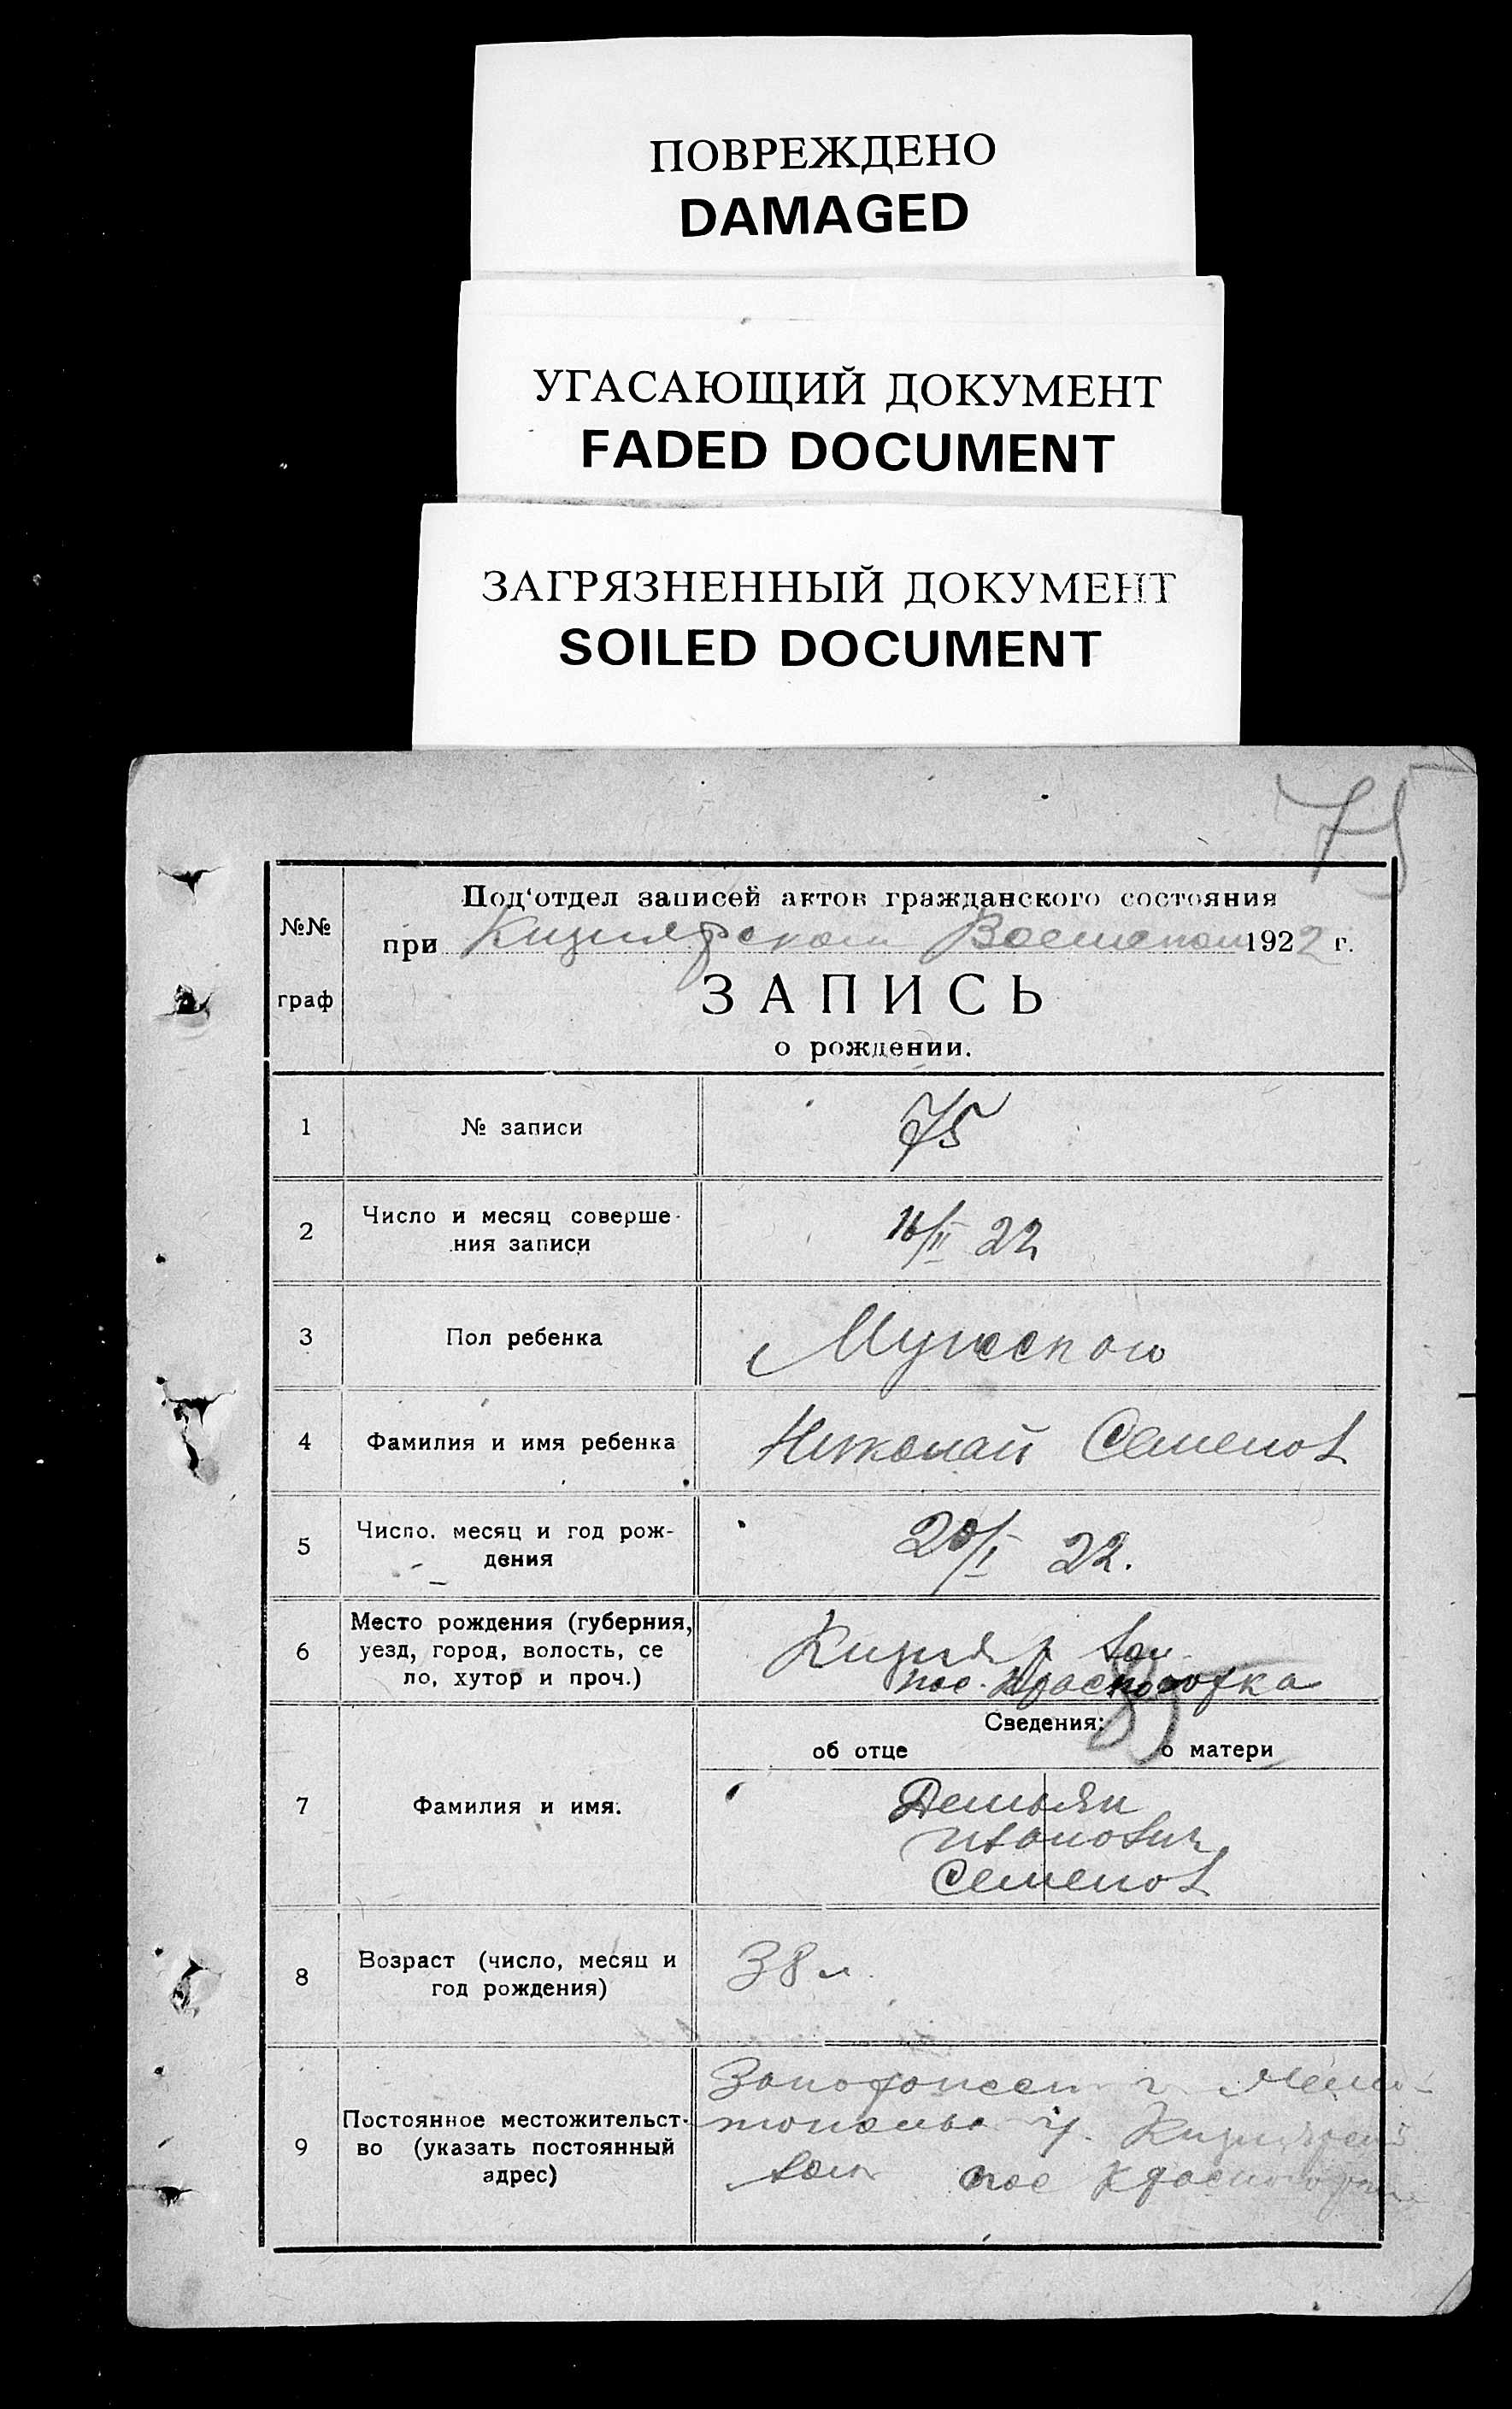 ПОВРЕЖДЕНО
DAMAGED
УГАСАЮЩИЙ ДОКУМЕНТ
FADED DOCUMENT
ЗАГРЯЗНЕННЫЙ ДОКУМЕНТ
SOILED DOCUMENT
75
№№ граф
Под'отдел записей актов гражданского состояния
при Кизиярском 1922 г.
ЗАПИСЬ
о рождении.
1 № записи 75
2 Число и месяц соверше-
ния записи 16/II 22
3 Пол ребенка Мужского
4 Фамилия и имя ребенка Николай Семенов
5 Число, месяц и год рож-
дения 20/I 22.
6 Место рождения (губерния,
уезд, город, волость, се
ло, хутор и проч.)
Кизияр вол.
пос.
Сведения:
об отце о матери
7 Фамилия и имя.
Демьян
Иванович
Семенов
8 Возраст (число, месяц и
год рождения) 38 л.
9 Постоянное местожительст-
во (указать постоянный
адрес)
г. Мели-
топольс. у.
вол пос